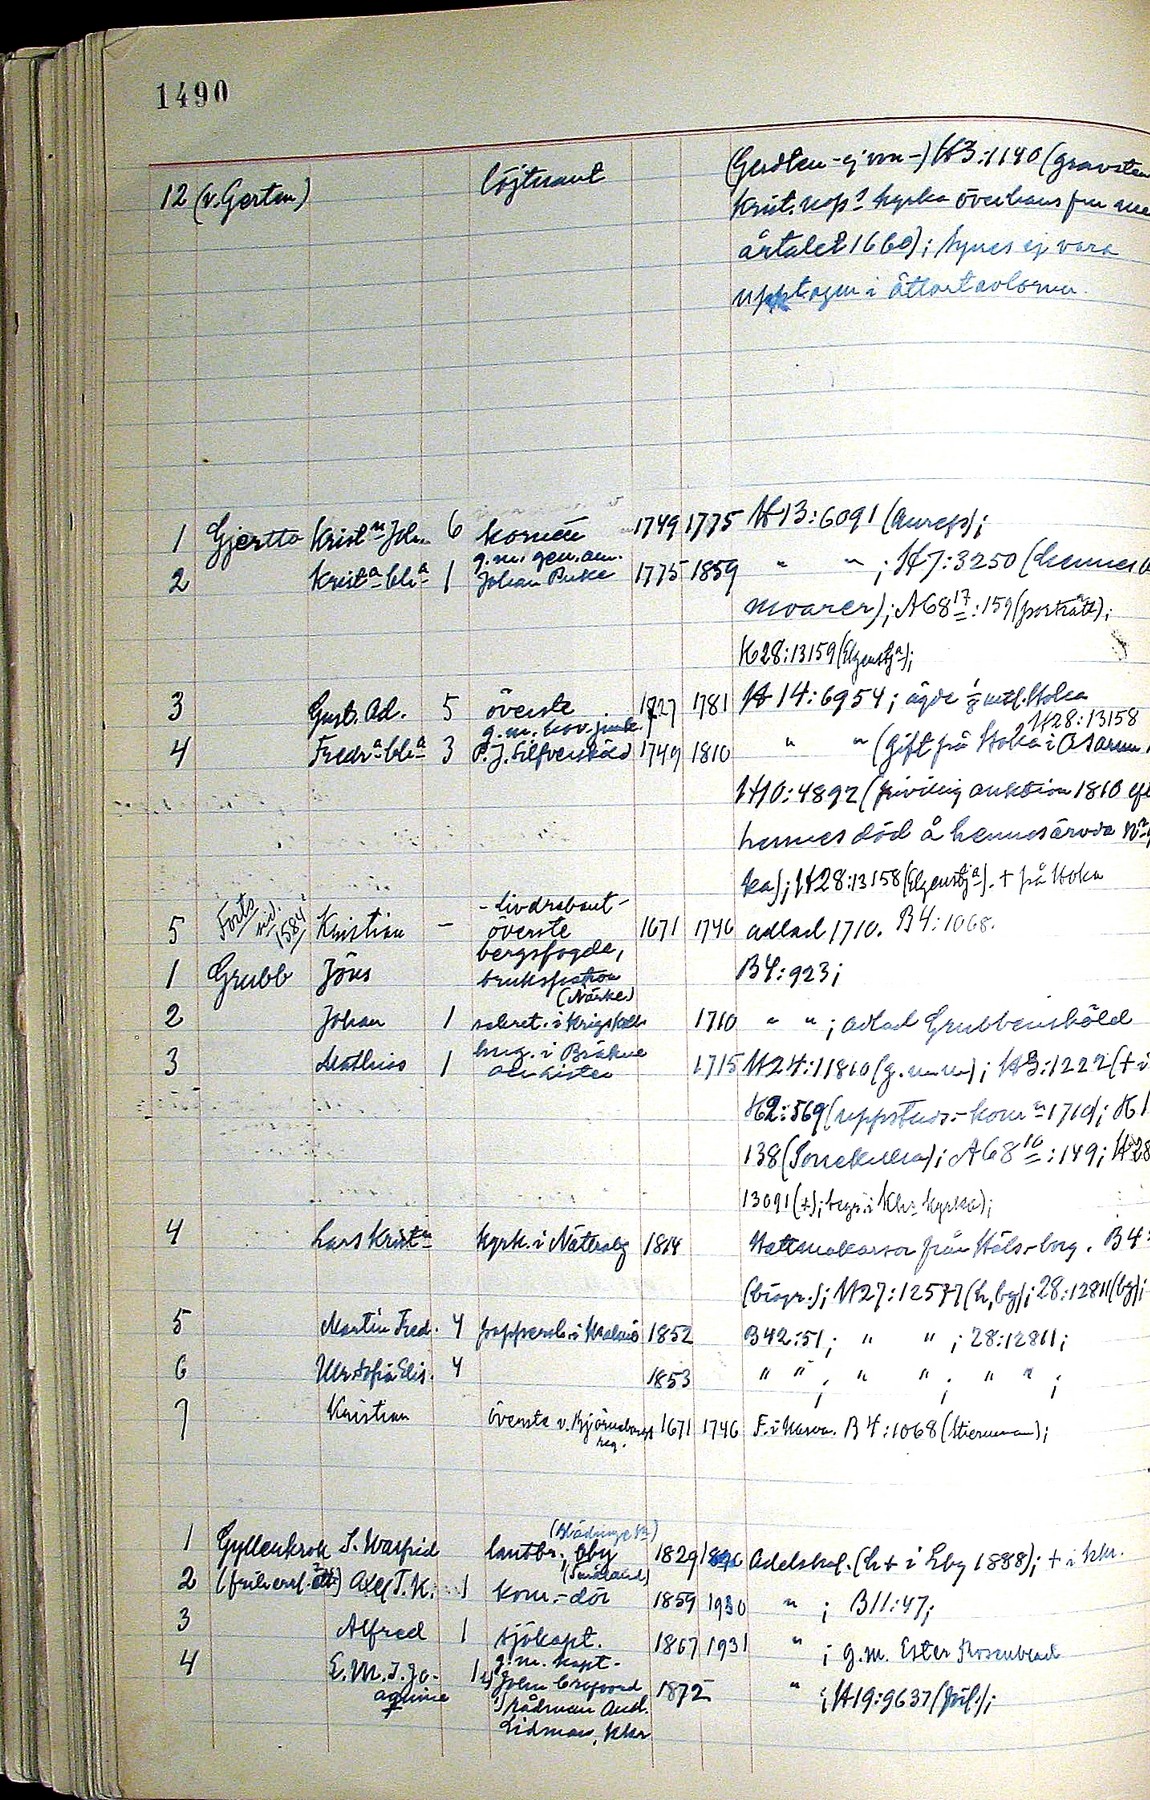 1490
12 (v. Gerten) löjtnant (Gerdten - ej von -) H3:1140 (gravsten
Krist. nop? kyrka överhans fru
årtalet 1660); synes ej vara
upptagen i ättartavlorna.
1 Gjertta Krist n Joh. 6 kornett 1749 1775 H13:6091 (Auref);
2 Krist a bla 1 g.m. gen.am. Johan Puke 1775 1859 " " ; H7:3250 (hennes
moarer); A68 17:159 (porträtt);
H28:13159 (Elgenstj a);
3 Gust. Ad. 5 överste 1727 1781 H14:6954; ägde 1/8 mtl. Hoka
H28:13158
4 Fredr a bla 3 g.m. hov.junk. P.J. Silfversköld 1749 1810 " " (Gift på Hoka i Asarum
H10:4892 (frivillig auktion 1810
hennes död å hennes ärvda
ka); H28:13158 (Elgenstj a). + på Hoka
5 Forts. vid. 1584 Kristian - - livdrabant - överste 1671 1746 adlad 1710. B4:1068.
1 Grubb Jöns bergsfogde, brukspatron (Närke) B4:923;
2 Johan 1 sekret. i Krigskoll. 1710 " " ; adlad Grubbensköld
3 Mathias 1 i Bräkne och Lister 1715 H24:11810 (g.m.m); H3:1222 (+ i
H2:569 (uppstuds.-kom n 1710); H1
138 (Sonekulla); A68 16:149; H28
13091 (+); begr. i Khs kyrka);
4 Lars Krist n kyrk. i Nättraby 1814 Hattmakarson från Hälsborg. B4:
(biogr.); H27:12577 (h, bg); 28:12811 (bg);
5 Martin Fred. 4 i Malmö 1852 B42:51; " " ; 28:12811;
6 Ulr. Sofia Elis. 4 1853 " " ; " " ; " " ;
7 Kristian överste v. Björneborgs reg. 1671 1746 F. i Narva. B4:1068 (Stiernman);
1 Gyllenkrok S. Walfrid lantbr. (Blädinge sn) Öby (Småland) 1829 Adelskal. (h + i Eby 1888); + i khr.
2 (friherrl. ätt) Axel T. K. 1 kom.-dör 1859 1930 " ; B11:47;
3 Alfred 1 sjökapt. 1867 1931 " ; g.m. Ester Rosenblad
4 E. M. T. Jo-aquine 1 g.m. kapt. John Crafoord rådman Aud. Lidman, Khr 1872 " ; H19:9637 (förf.);